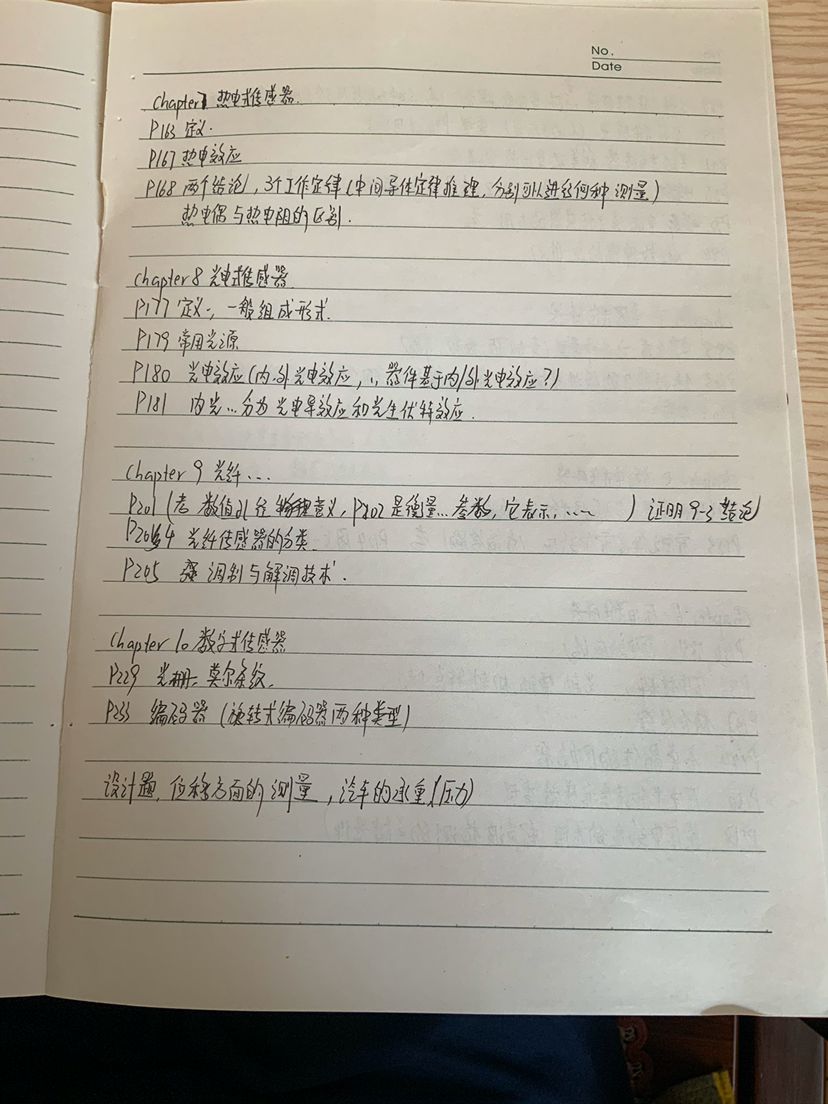 No.
Date
Chapter 7 热电式传感器.
P163 定义.
P167 热电效应
P168 两个结论, 3个工作定律(中间导体定律推理, 分别可以进行何种测量)
热电偶与热电阻的区别.
chapter 8 光电式传感器
P177 定义, 一般组成形式.
P179 常用光源
P180 光电效应(内.外光电效应, 器件基于内/外光电效应?)
P181 内光...分为光电导效应和光生伏特效应.
chapter 9 光纤...
P201 (考 数值孔径 物理意义, P202 是衡量...参数, 它表示, ......) 证明9-3 结论
P204 光纤传感器的分类.
P205 强 调制与解调技术.
Chapter 10 数字式传感器
P229 光栅 莫尔条纹.
P233 编码器 (旋转式编码器两种类型)
设计题, 位移方面的测量, 汽车的承重(压力)